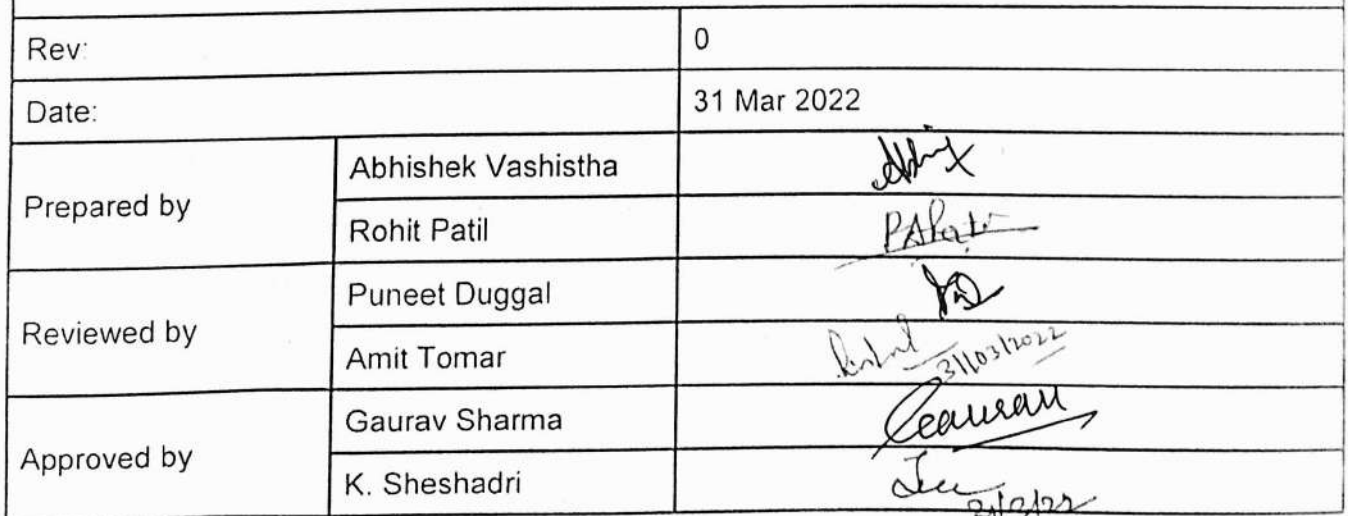 Rev: 0
Date: 31 Mar 2022
Prepared by
Abhishek Vashistha
Rohit Patil
Reviewed by
Puneet Duggal
Amit Tomar
31/03/2022
Approved by
Gaurav Sharma Gaurav
K. Sheshadri
31/3/22